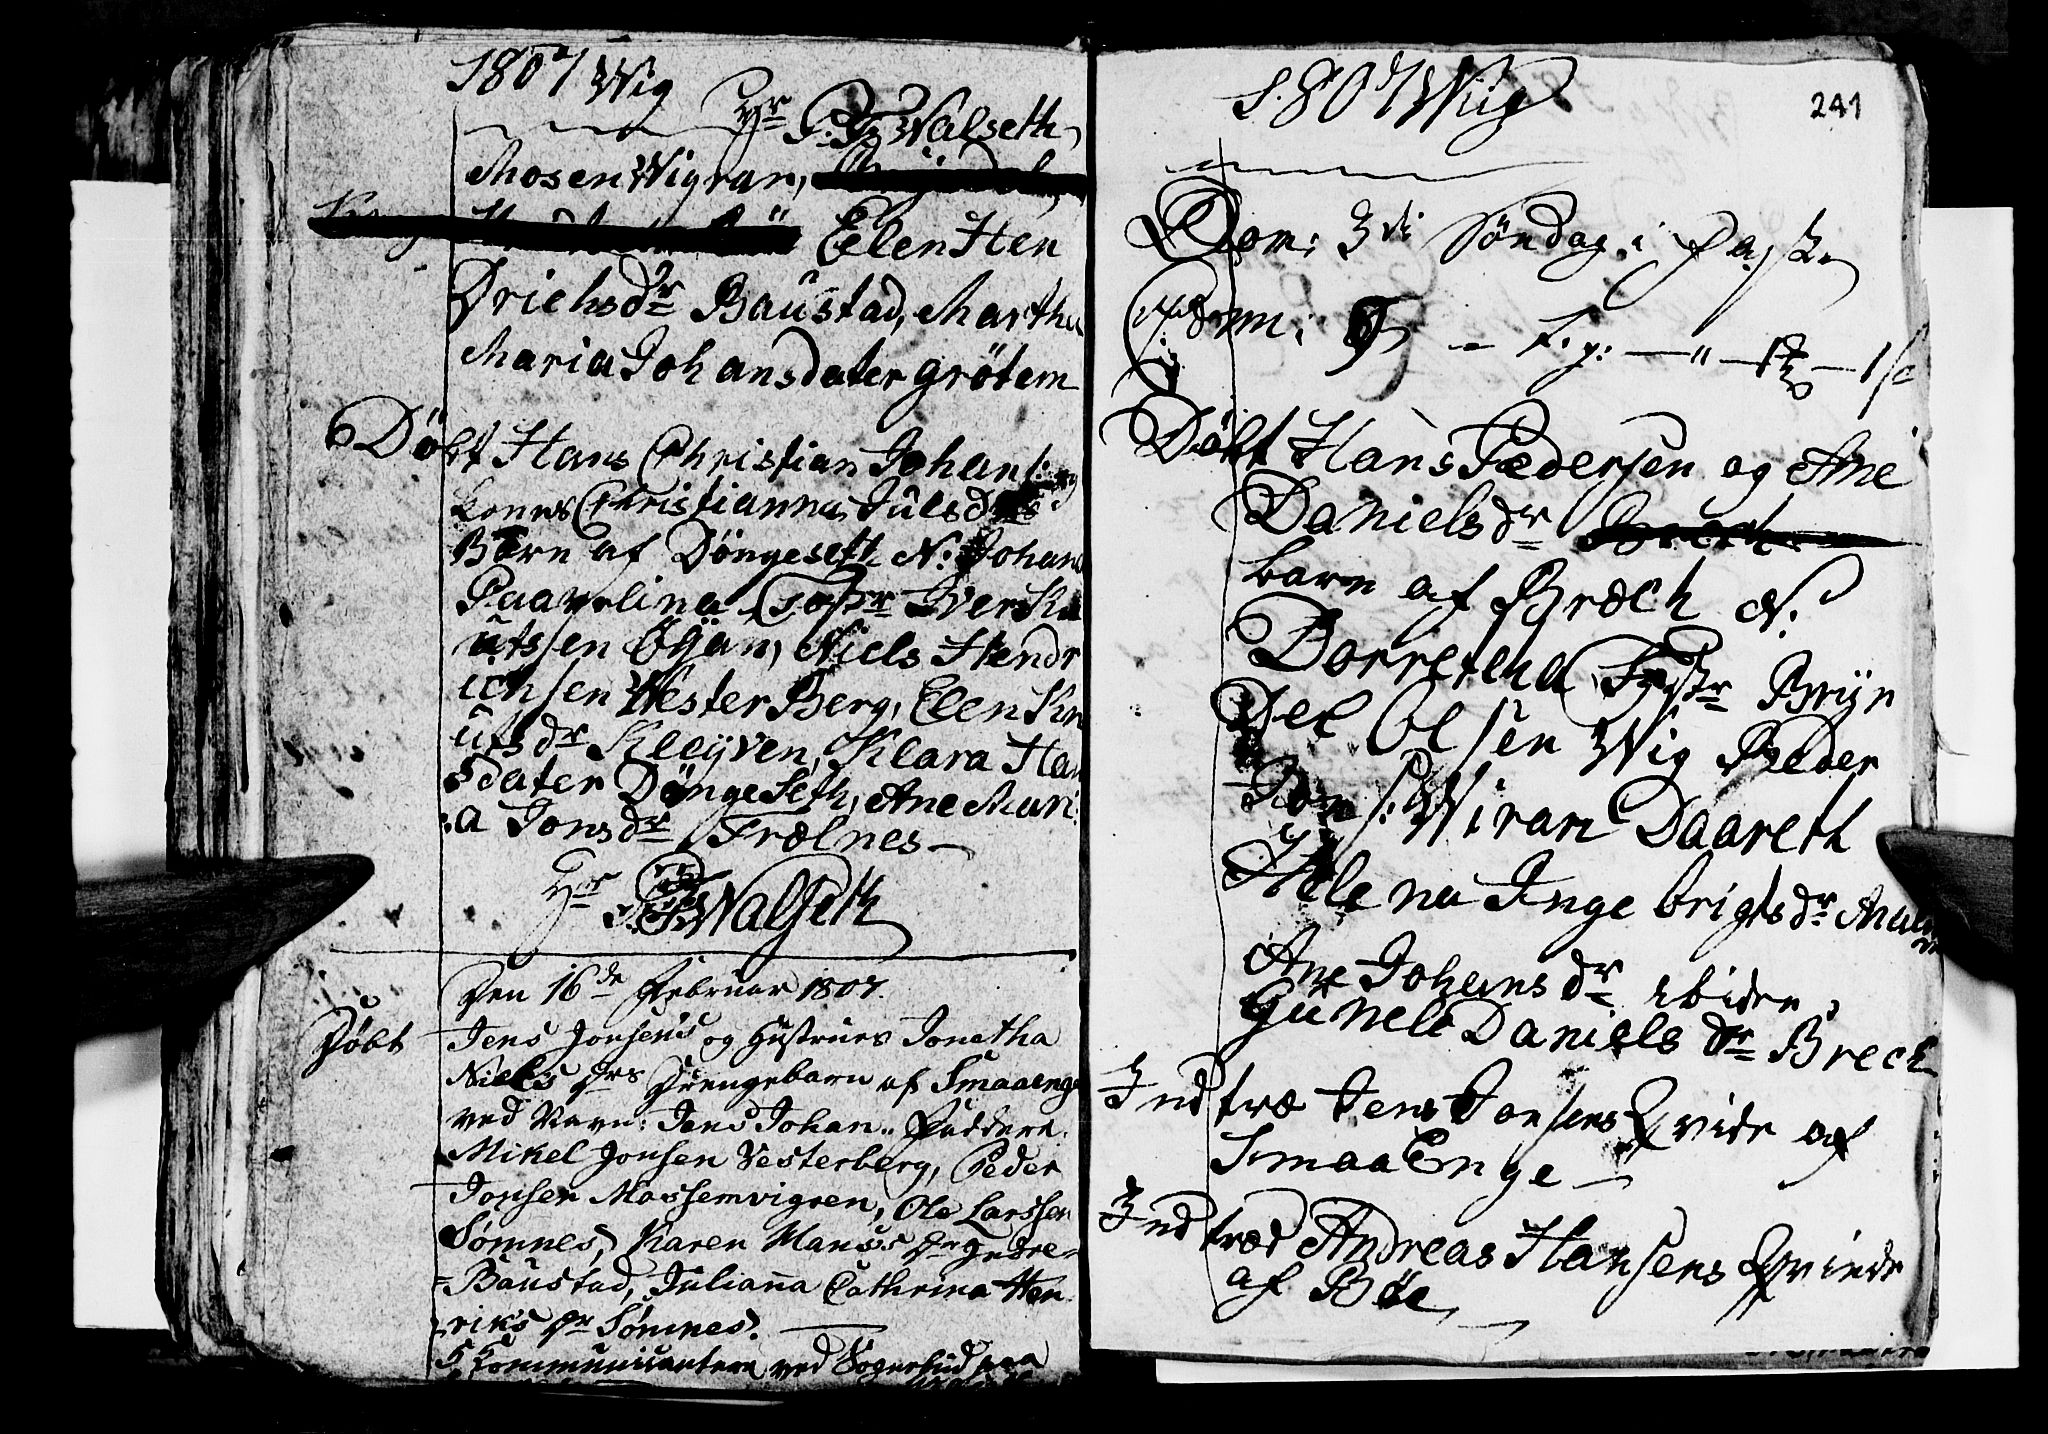 1807 Wig
Hr P: Walseth
Mosen Wigran,
Elen Hen
Drichsdr Baüstad, Martha
Maria Johansdater grötem
Döbt Hans Christian Johans: og
Kones Christianna Jülsd
Barn af Döngeseth N: Johana
Paavelina Fasr Iver Kn
ütsen Öÿan, Niels Hendr
ichsen Wester Berg, Elen Kn
ütsdr Kleÿven, Klara Han
sdater Döngeseth, Ane Mari
:a Jonsdr Trælnes
Hr Walseth
Den 16de Februar 1807.
Döbt Jens Jonsens og Hustrues Jonetha
Niels Drs Drengebarn af Smaaenge
ved Navn: Jens Johan.. Faddere.
Mikel Jonsen Vesterberg, Peder
Jonsen Mossemvigren, Ole Larssen
Sömnes, Karen Hanss Dr Indre=
=Baustad, Julianna Cathrina Hen
riks Dr Sömnes.
5 Kommunicantere ved Sognebud paa
1807 Wig
241
Dom: 3di Söndag i Paske
Döbt Hans Pædersen og Ane
Danielsdr
barn af Bræck N:
Dorrethea Fasr Brÿn
Jel Olsen Wig Peder
Jons: Wiran Daareth
Helena Ingebrigtsdr
Ane Johansdr ibiden,
Günele Daniels dr Breck
Indtræ Jens Jonsens Qvide af
Smaa Enge
Indtræd Andreas Hansens Qvinde
af Böe